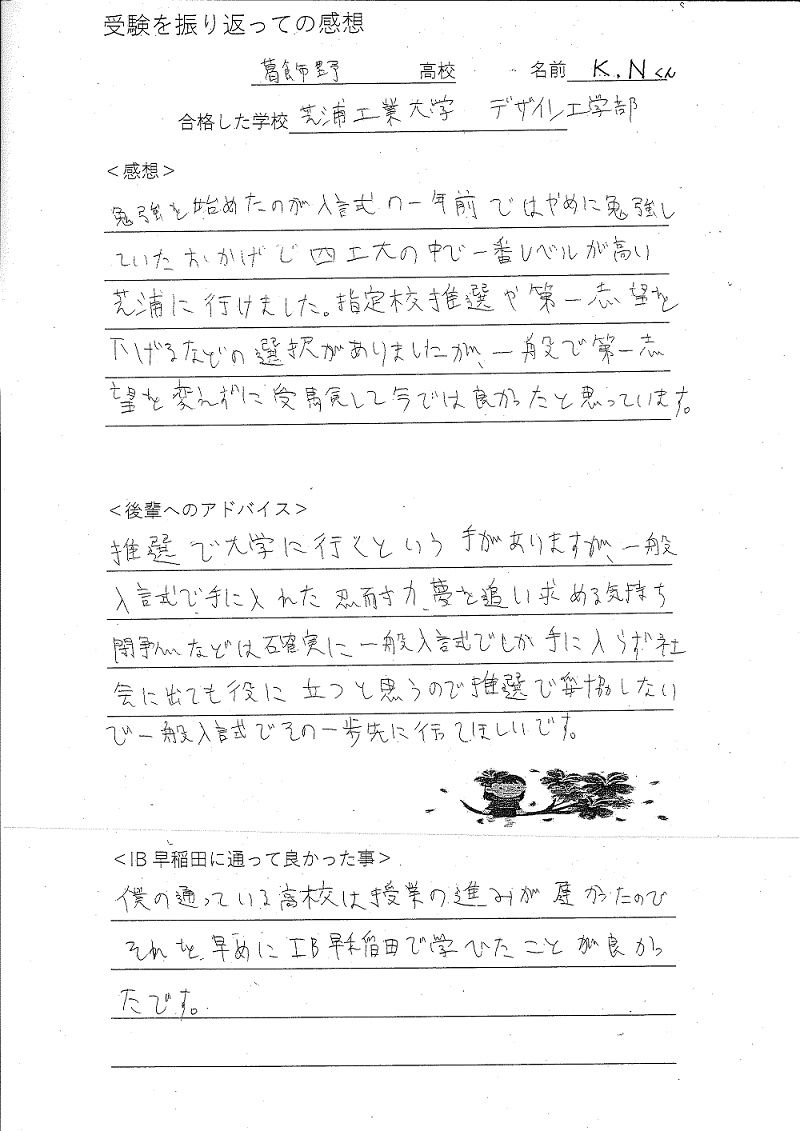 受験を振り返っての感想
葛飾野 高校 名前 K.Nくん
合格した学校 芝浦工業大学 デザイン工学部
<感想>
勉強を始めたのが入試の一年前ではやめに勉強し
ていたおかげで四工大の中で一番レベルが高い
芝浦に行けました。指定校推選や第一志望を
下げるなどの選択がありましたが、一般で第一志
望を変えずに受験して今では良かったと思っています。
<後輩へのアドバイス>
推選で大学に行くという手がありますが、一般
入試で手に入れた忍耐力、夢を追い求める気持ち
闘争心などは確実に一般入試でしか手に入らず社
会に出ても役に立つと思うので推選で妥協しない
で一般入試でその一歩先に行ってほしいです。
<IB早稲田に通って良かった事>
僕の通っている高校は授業の進みが遅かったので
それを早めにIB早稲田で学びたことが良かっ
たです。